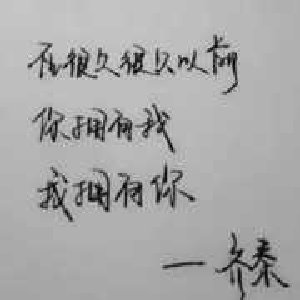 在很久很久以前
你拥有我
我拥有你
一齐秦